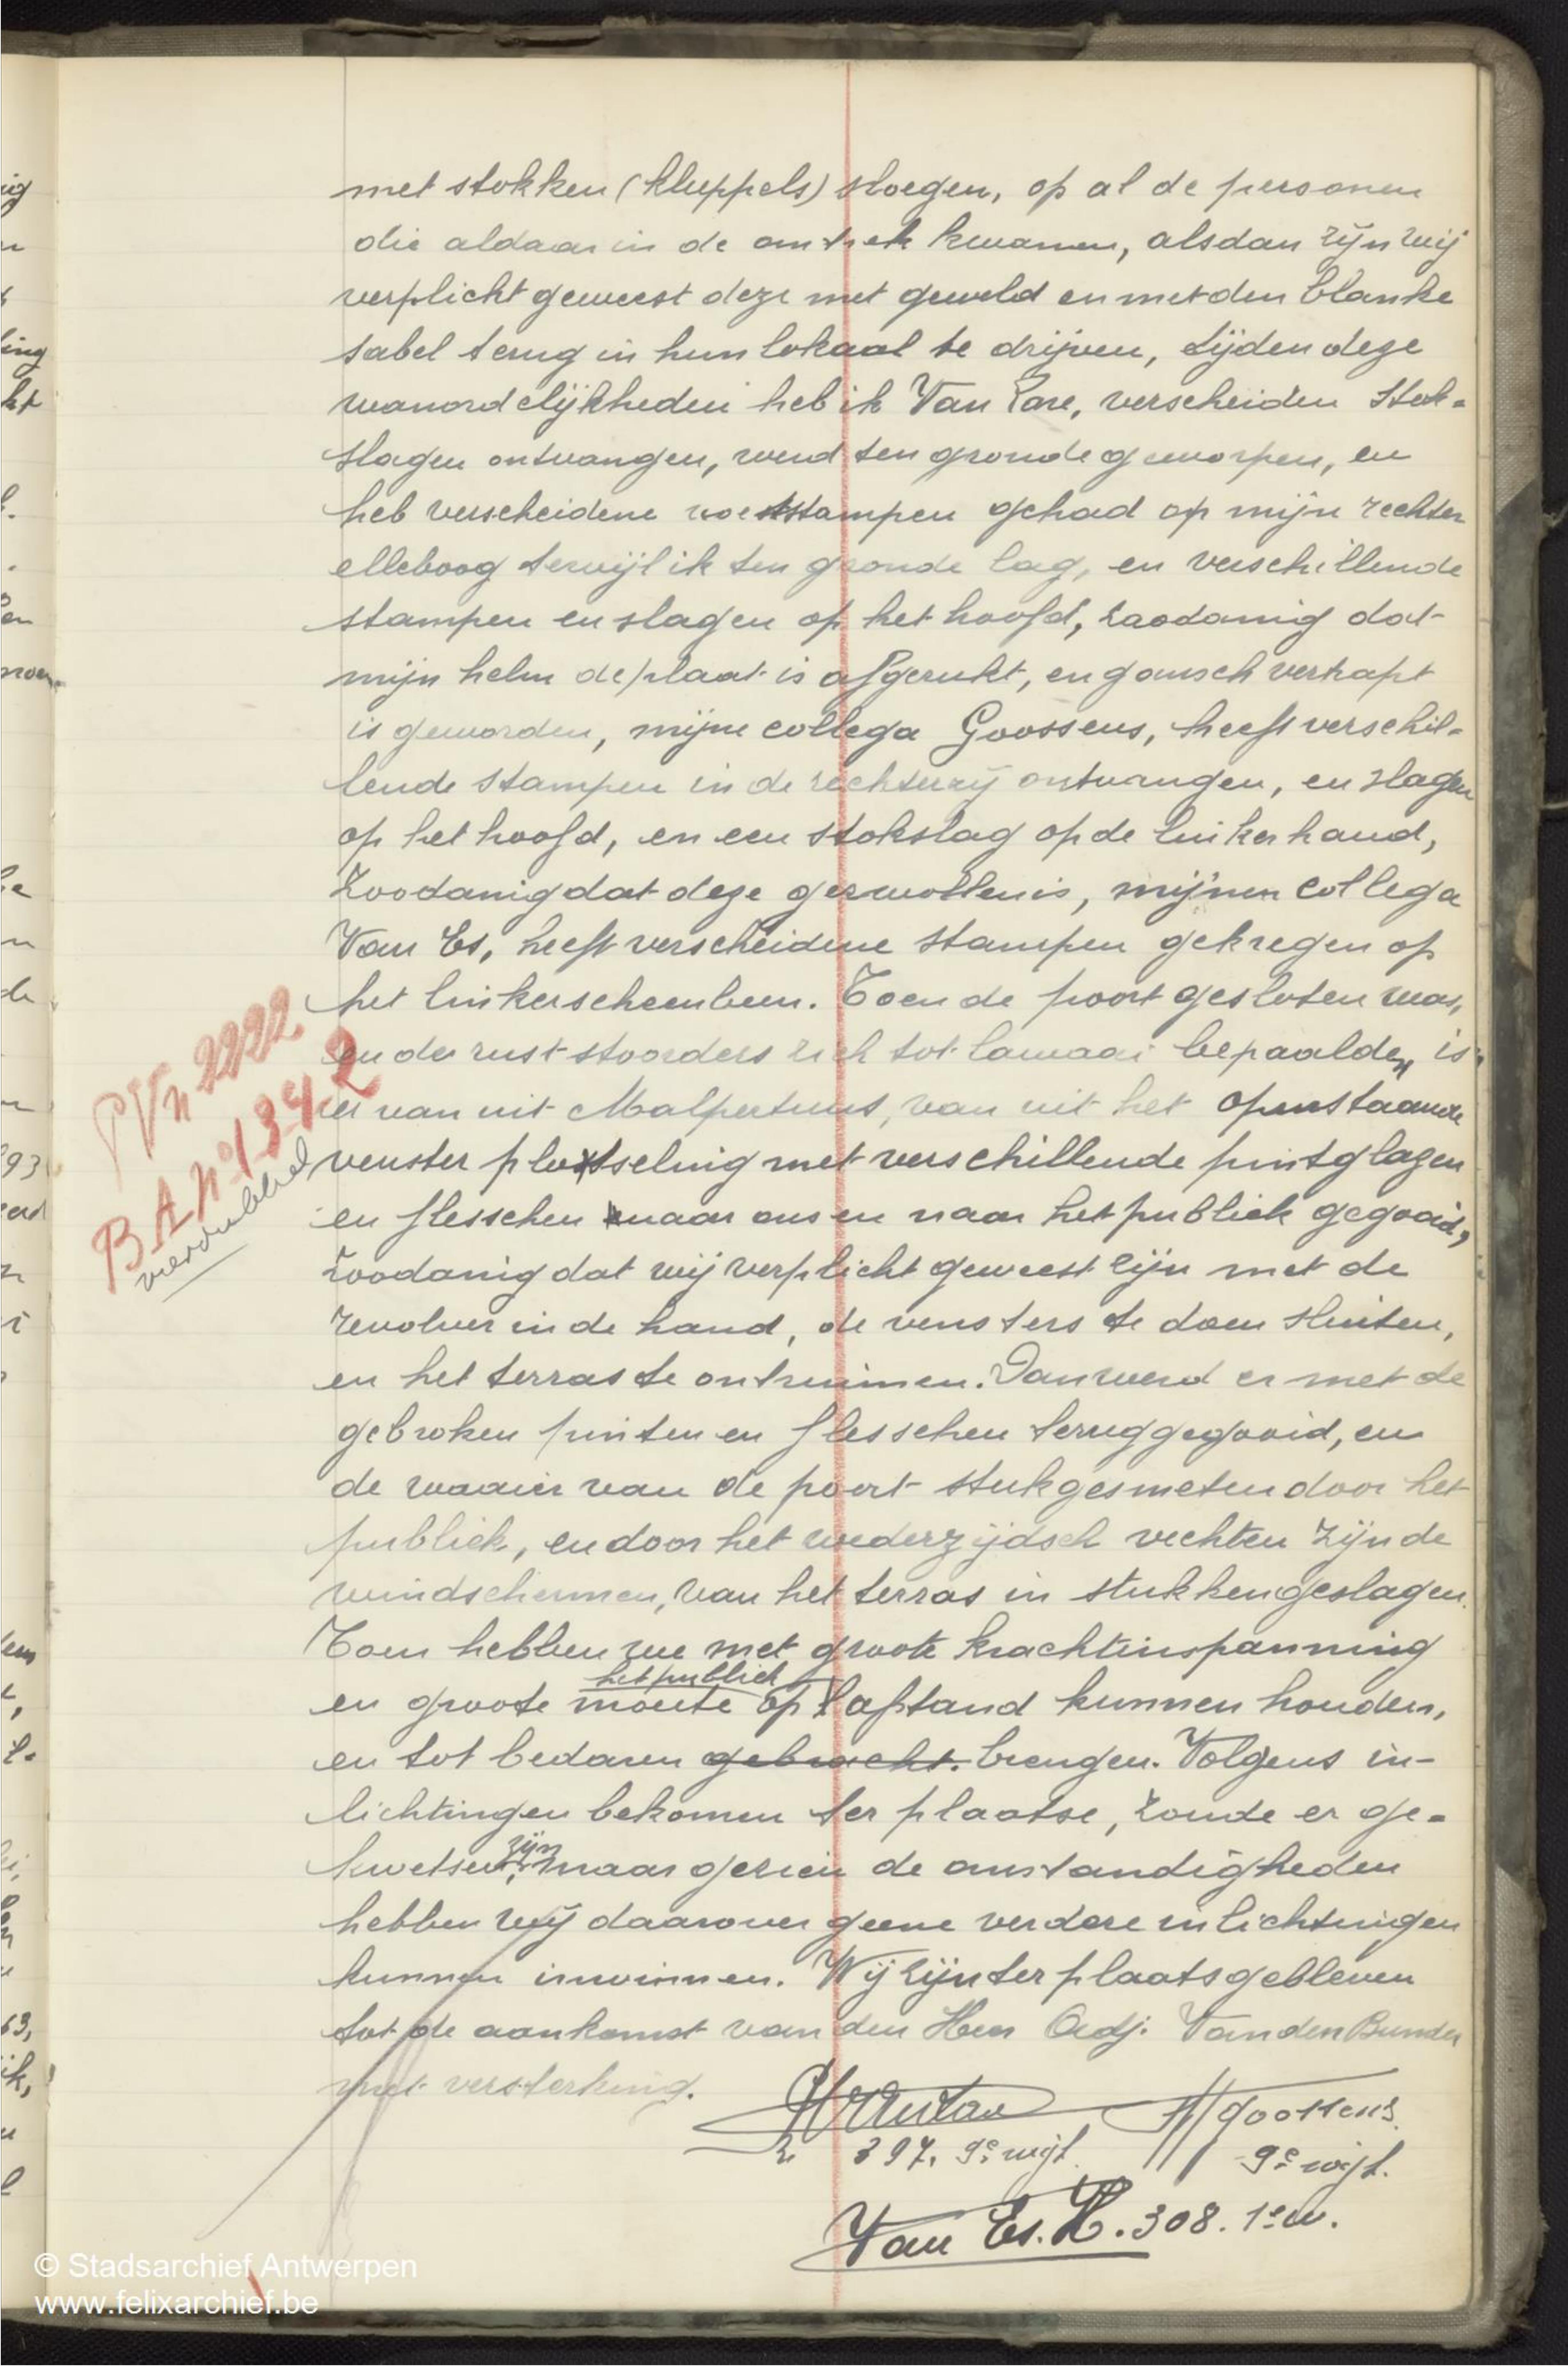 met stokken (kluppels) sloegen, op al de personen
die aldaar in de omtrek kwamen, alsdan zijn wij
verplicht geweest deze met geweld en met den blanke
sabel terug in hun lokaal te drijven, tijden deze
wanordelijkheden heb ik Van Lare, verscheiden Stok-
slagen ontvangen, werd ten gronde geworpen, en
heb verscheidene voetstampen gehad op mijn rechter
elleboog terwijl ik ten gronde lag, en verschillende
stampen en slagen op het hoofd, zoodanig dat
mijn helm de plaat is afgerukt, en gansch verkapt
is geworden, mijne collega Goossens, heeft verschil-
lende stampen in de rechterzij ontvangen, en slagen
op het hoofd, en een stokslag op de linkerhand,
Zoodanig dat deze gezwollen is, mijnen collega
Van Es, heeft verscheidene stampen gekregen op
het linkerscheenbeen. Toen de poort gesloten was,
en de rust-stoorders zich tot lawaai bepaalden, is
er van uit Malpertuus, van uit het openstaande
venster plotselinig met verschillende pintglazen
en flesschen naar ons en naar het publiek gegooid,
Zoodanig dat wij verplicht geweest zijn met de
revolver in de hand, de vensters te doen sluiten,
en het terras te ontruimen. Dan werd er met de
gebroken pinten en flesschen teruggegooid, en
de waaier van de poort stukgesmeten door het
publiek, en door het wederzijdsch vechten zijn de
windschermen, van het terras in stukken geslagen.
Toen hebben we met groote krachtinspanning
het publiek
en groote moeite op afstand kunnen houden,
en tot bedaren gebracht. brengen. Volgens in-
lichtingen bekomen ter plaatse, zoude er ge-
kwetsen zijn, maar gezien de omstandigheden
hebben wij daarover geene verdere inlichtingen
kunnen inwinnen. Wij zijn ter plaats gebleven
tot de aankomst van den Heer Adj. Van den Bunder
met versterking.
PVn 2222
B.A. No 1342
Goossens
397. 9e wijk
9e wijk.
Van Es. H. 308. 1e w.
© Stadsarchief Antwerpen
www.felixarchief.be